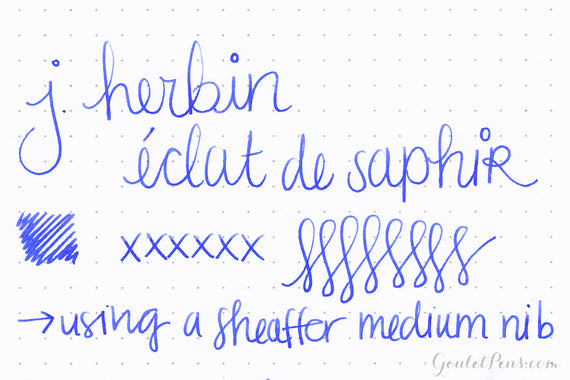 j herbin
éclat de saphir
xxxxxx
→using a sheaffer medium nib
GouletPens.com